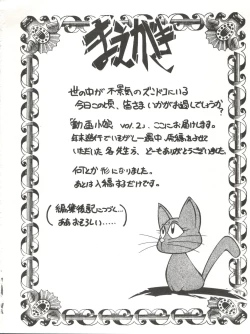 まえがき
世の中が不景気のズンドコにいる
今日この頃、皆さま いかがお過しでしょうか?
「動画小娘 vol.2」ここにお届けします。
年末進行でいそがしい最中、原稿をよせて
いただいた各先生方、どーもありがとうございました。
何とか形になりました。
あとは入稿するだけです。
(編集後記につづく…
ああ おそろしい……)